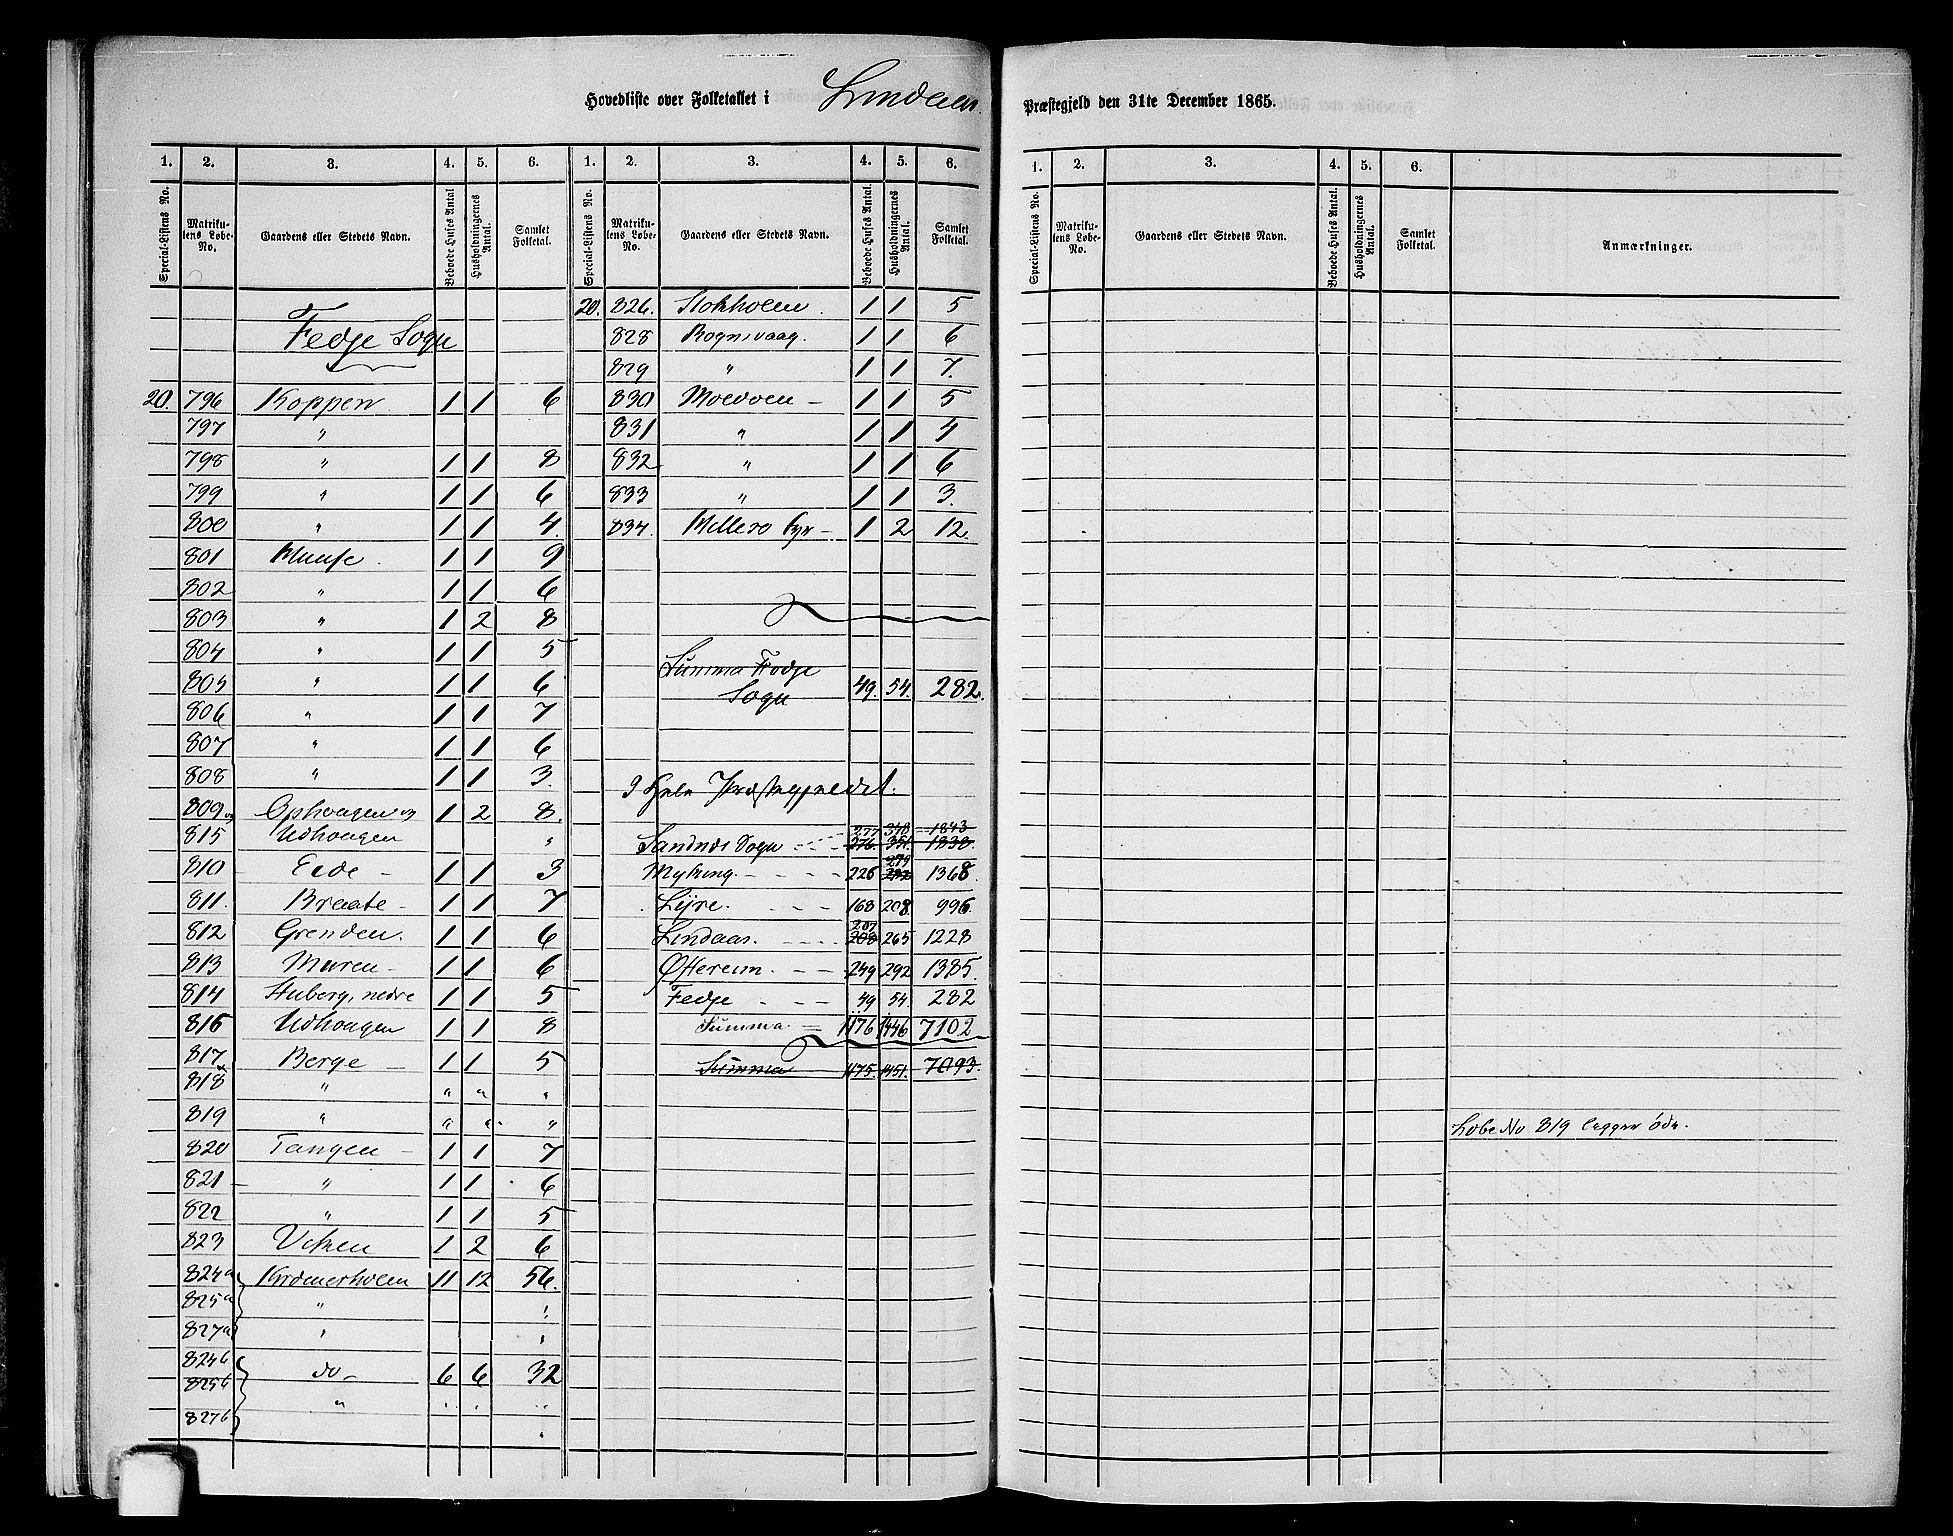 Hovedliste over Folketallet i Lindaas Præstegjeld den 31te December 1865.
1. 2. 3. 4. 5. 6. 1. 2. 3. 4. 5. 6.
Special-Listens No. Matrikulens Løbe-No. Gaardens eller Stedets Navn. Beboede Huses Antal Husholdningernes Antal. Samlet Folketal. Special-Listens No. Matrikulens Løbe-No. Gaardens eller Stedets Navn. Beboede Huses Antal. Husholdningernes Antal. Samlet Folketal.
Fedje Sogn
20. 796 Koppen 1 1 6
797 "
798 " 1 1 8
799 " 1 1 6
800 " 1 1 4.
801 1 1 9
802 " 1 1 6
803 " 1 2 8
804 " 1 1 5
805 " 1 1 6
806 " 1 1 7
807 " 1 1 6
808 " 1 1 3.
809 og Ophougen og 1 2 8.
815 Udhougen "
810 Eide - 1 1 3
811. Braate - 1 1 7
812 Grenden. 1 1 6
813 Muren - 1 1 6
814 Stuberg, nedre 1 1 5
816 Udhougen 1 1 8
817 Berge - 1 1 5
818 " " " "
819 " " " "
820 Tangen - 1 1 7
821 - " 1 1 6
822 " 1 1 5
823 Viken 1 2 6
824a Kræmerholm 11 12 56.
825a "
827a "
824b do - 6 6 32
825b "
827b
20. 826. Stokholm. 1 1 5
828 Rognsvaag. 1 1 6
829 " 1 1 7.
830 Moldøen - 1 1 5
831 " 1 1 4
832 " 1 1 6
833 " 1 1 3.
834. Hellesø Fyr - 1 2 12.
Summa Fedje
Sogn 49. 54. 282.
I Hele Præstegjeldet.
277 348 1843
Sandnæs Sogn 276. 351. 1838.
279
Myking. 226 1368
Lyre. 168 208. 996
207
Lindaas. 208 265 1228
Østereim. 249 292 1385.
Fedje 49 54. 282
Summa 1176 1446 7102
Summa 1175. 1451. 7093.
1. 2. 3. 4. 5. 6.
Special-Listens No. Matrikulens Løbe-No. Gaardens eller Stedets Navn. Beboede Huses Antal. Husholdningernes Antal. Samlet Folketal. Anmærkninger.
Løbe No 819 ligger øde.